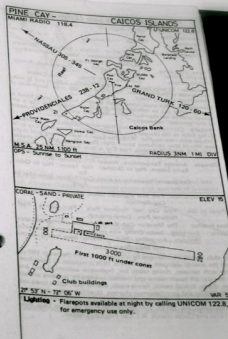 PINE CAY -
CAICOS ISLANDS
MIAMI RADIO 118.4
UNICOM 122.8
NASSAU 305 - 345
PROVIDENCIALES 238 - 12
GRAND TURK 120 - 60
Caicos Bank
M.S.A. 25 NM 1,100 ft
RADIUS 3NM 1 MI DIV
OPS - Sunrise to Sunset
CORAL - SAND - PRIVATE
ELEV 15
3,000
First 1000 feet under const
Club buildings
21° 53' N - 72° 06' W
VAR 5
Lighting - Flarepots available at night by calling UNICOM 122.8,
for emergency use only.